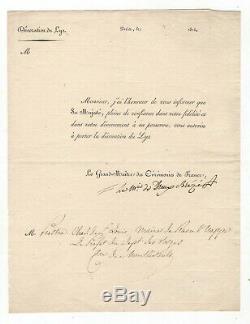 Décoration du Lys.
Paris, le 181
M
Monsieur, j'ai l'honneur de vous informer que
Sa Majesté, pleine de confiance dans votre fidélité et
dans votre dévouement à sa personne, vous autorise
à porter la décoration du Lys.
Le Grand-Maître des Cérémonies de France,
Le Mis de Dreux Brézé
M. Louis, Maire de Raon
Le Préfet du Dépt des Vosges